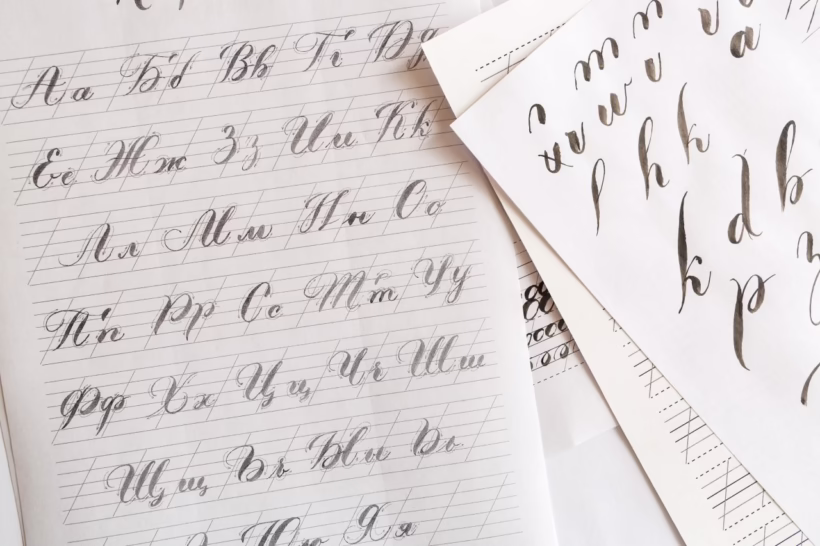 Аа Бб Вв Гг Дд
Ее Жж Зз Ии Кк
Лл Мм Нн Оо
Пп Рр Сс Тт Уу
Фф Хх Цц Чч Шш
Щщ Ъъ Ыы Ьь
Юю Яя
m n v
w v a
l h k
k d h
p